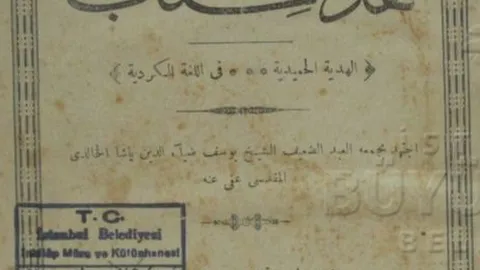 هذا كتاب
﴿ الهدية الحميدية ٥٥٥ فى اللغة الكردية ﴾
اجتهد بجمعه العبد الضعيف الشيخ يوسف ضياء الدين باشا الخالدى
المقدسى عفى عنه
T. C.
İstanbul Belediyesi
İnkılâp Müze ve Kütüphanesi
İSTA
BÜYÜ
BE